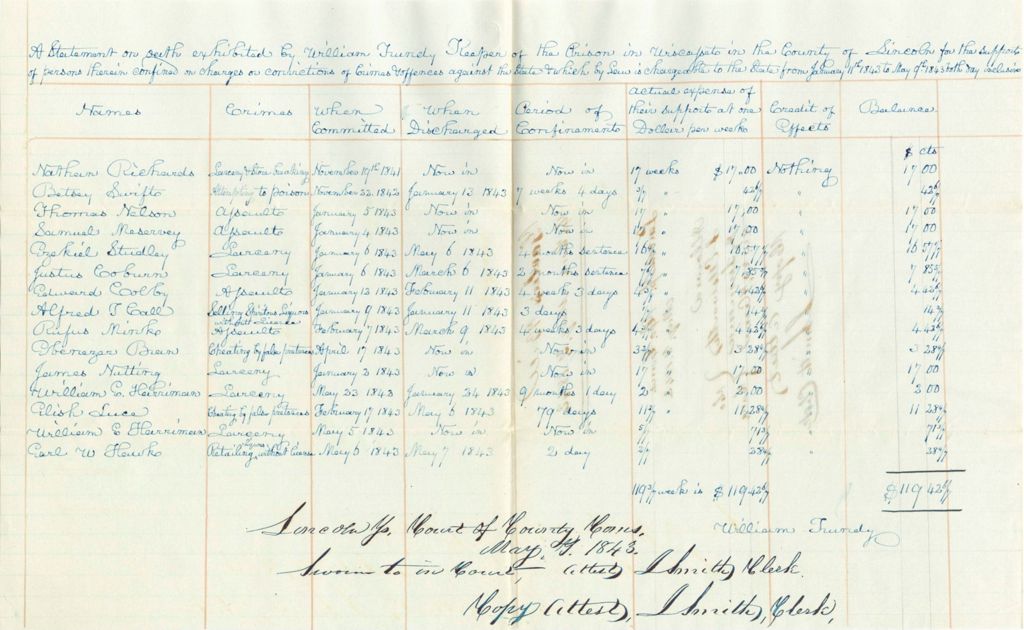 A Statement on oath exhibited by William Trundy Keeper of the Prison in Wiscasset in the County of Lincoln for the support
of persons therein confined on charges or convictions of Crimes & offences against the State & which by Law is chargeable to the State from January 11th 1843 to May 9th 1843 both day inclusive
Names Crimes When Committed When Discharged Period of Confinements Actual expense of their supports at one Dollar per weeks Credit of Effects Balance
$ cts
Nathan Richards Larceny & Store breaking November 19th 1841 Now in Now in 17 weeks $17,00 Nothing 17 00
Betsey Swift Attempting to poison November 22 1842 January 13 1843 7 weeks 4 days 3/7 " 42 6/7 " 42 6/7
Thomas Nelson Assault January 5 1843 Now in Now in 17 " 17,00 " 17,00
Samuel Meservey Assault January 4 1843 Now in Now in 17 " 17,00 " 17 00
Ezekiel Studley Larceny January 6 1843 May 6 1843 4 months sentence 16 4/7 " 16,57 1/7 " 16 57 1/7
Justus Coburn Larceny January 6 1843 March 6 1843 2 months sentence 7 6/7 " 7 85 5/7 " 7 85 5/7
Edward Colby Assault January 12 1843 February 11 1843 4 weeks 3 days 4 3/7 " 4 42 6/7 " 4 42 6/7
Alfred T Call Selling Spiritous Liquors without License January 9 1843 January 11 1843 3 days 1/7 " 14 2/7 " 14 2/7
Rufus Minks Assault February 7 1843 March 9 1843 4 weeks 3 days 4 3/7 " 4 42 6/7 " 4.42 6/7
Ebenezar Bran Cheating by false pretences April 17 1843 Now in Now in 3 2/7 " 3 28 4/7 " 3 28 4/7
James Nutting Larceny January 2 1843 Now in Now in 17 " 17,00 " 17 00
William C. Herriman Larceny May 23 1843 January 24 1843 9 months 1 day 2 " 2,00 " 2 00
Elish Luce Cheating by false pretences February 17 1843 May 6 1843 79 days 11 2/7 " 11,28 4/7 " 11 28 4/7
William C Herriman Larceny May 5 1843 Now in Now in 5/7 " 71 3/7 " 71 3/7
Earl W Hawks Retailing Liquors without license May 6 1843 May 7 1843 2 day 2/7 " 28 4/7 " 28 4/7
119 3/7 week is $119 42 6/7 $119 42 6/7
William Trundy
Lincoln Ss. Court of County Coms,
May, T. 1843.
Sworn to in Court, Attest, J Smith, Clerk.
Copy Attest, J Smith, Clerk,